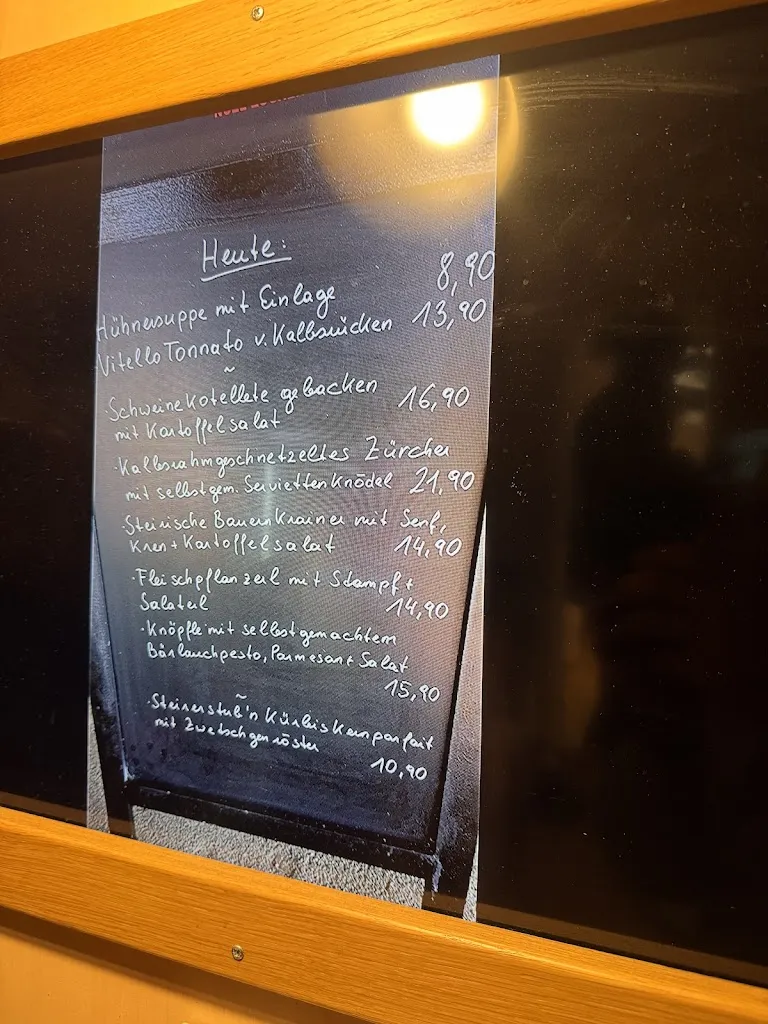 Heute:
Hühnersuppe mit Einlage 8,90
Vitello Tonnato v. Kalbsrücken 13,90
~
·Schweinekotelette gebacken
mit Kartoffelsalat 16,90
·Kalbsrahmgeschnetzeltes Zürcher
mit selbstgem. Serviettenknödel 21,90
·Steirische Bauernkrainer mit Senf,
Kren + Kartoffelsalat 14,90
·Fleischpflanzerl mit Stampf +
Salaterl 14,90
·Knöpfle mit selbstgemachtem
Bärlauchpesto, Parmesan + Salat
15,90
~
·Steirerstub'n Kürbiskernparfait
mit Zwetschgenröster
10,90